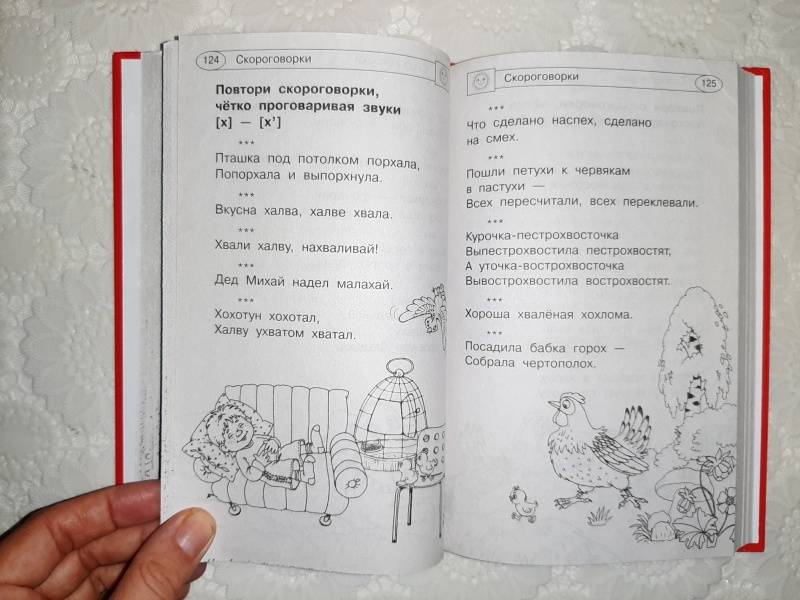 124 Скороговорки
Повтори скороговорки,
чётко проговаривая звуки
[х] — [х’]
***
Пташка под потолком порхала,
Попорхала и выпорхнула.
***
Вкусна халва, халве хвала.
***
Хвали халву, нахваливай!
***
Дед Михай надел малахай.
***
Хохотун хохотал,
Халву ухватом хватал.
Скороговорки 125
***
Что сделано наспех, сделано
на смех.
***
Пошли петухи к червякам
в пастухи —
Всех пересчитали, всех переклевали.
***
Курочка-пестрохвосточка
Выпестрохвостила пестрохвостят,
А уточка-вострохвосточка
Вывострохвостила вострохвостят.
***
Хороша хвалёная хохлома.
***
Посадила бабка горох —
Собрала чертополох.